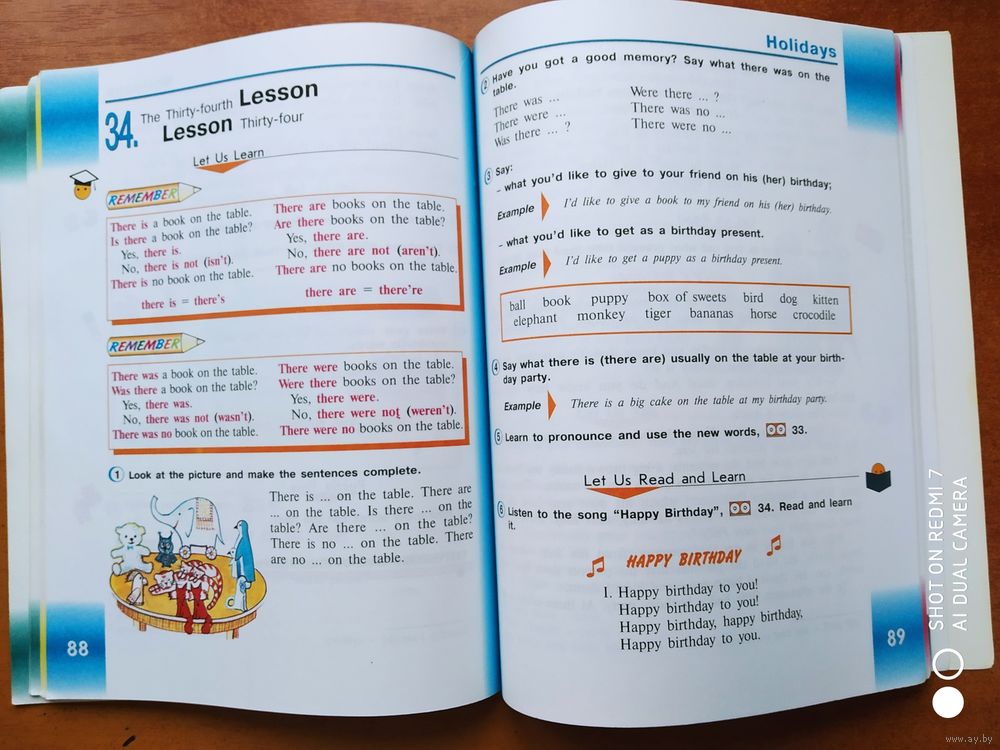 34. The Thirty-fourth Lesson
Lesson Thirty-four
Let Us Learn
REMEMBER
There is a book on the table.
Is there a book on the table?
Yes, there is.
No, there is not (isn't).
There is no book on the table.
there is = there's
There are books on the table.
Are there books on the table?
Yes, there are.
No, there are not (aren't).
There are no books on the table.
there are = there're
REMEMBER
There was a book on the table.
Was there a book on the table?
Yes, there was.
No, there was not (wasn't).
There was no book on the table.
There were books on the table.
Were there books on the table?
Yes, there were.
No, there were not (weren't).
There were no books on the table.
1 Look at the picture and make the sentences complete.
There is ... on the table. There are
... on the table. Is there ... on the
table? Are there ... on the table?
There is no ... on the table. There
are no ... on the table.
88
Holidays
2 Have you got a good memory? Say what there was on the
table.
There was ...
There were ...
Was there ... ?
Were there ... ?
There was no ...
There were no ...
3 Say:
– what you'd like to give to your friend on his (her) birthday;
Example I'd like to give a book to my friend on his (her) birthday.
– what you'd like to get as a birthday present.
Example I'd like to get a puppy as a birthday present.
ball book puppy box of sweets bird dog kitten
elephant monkey tiger bananas horse crocodile
4 Say what there is (there are) usually on the table at your birth-
day party.
Example There is a big cake on the table at my birthday party.
5 Learn to pronounce and use the new words, 33.
Let Us Read and Learn
6 Listen to the song "Happy Birthday", 34. Read and learn
it.
HAPPY BIRTHDAY
1. Happy birthday to you!
Happy birthday to you!
Happy birthday, happy birthday,
Happy birthday to you.
89
SHOT ON REDMI 7
AI DUAL CAMERA
www.ay.by